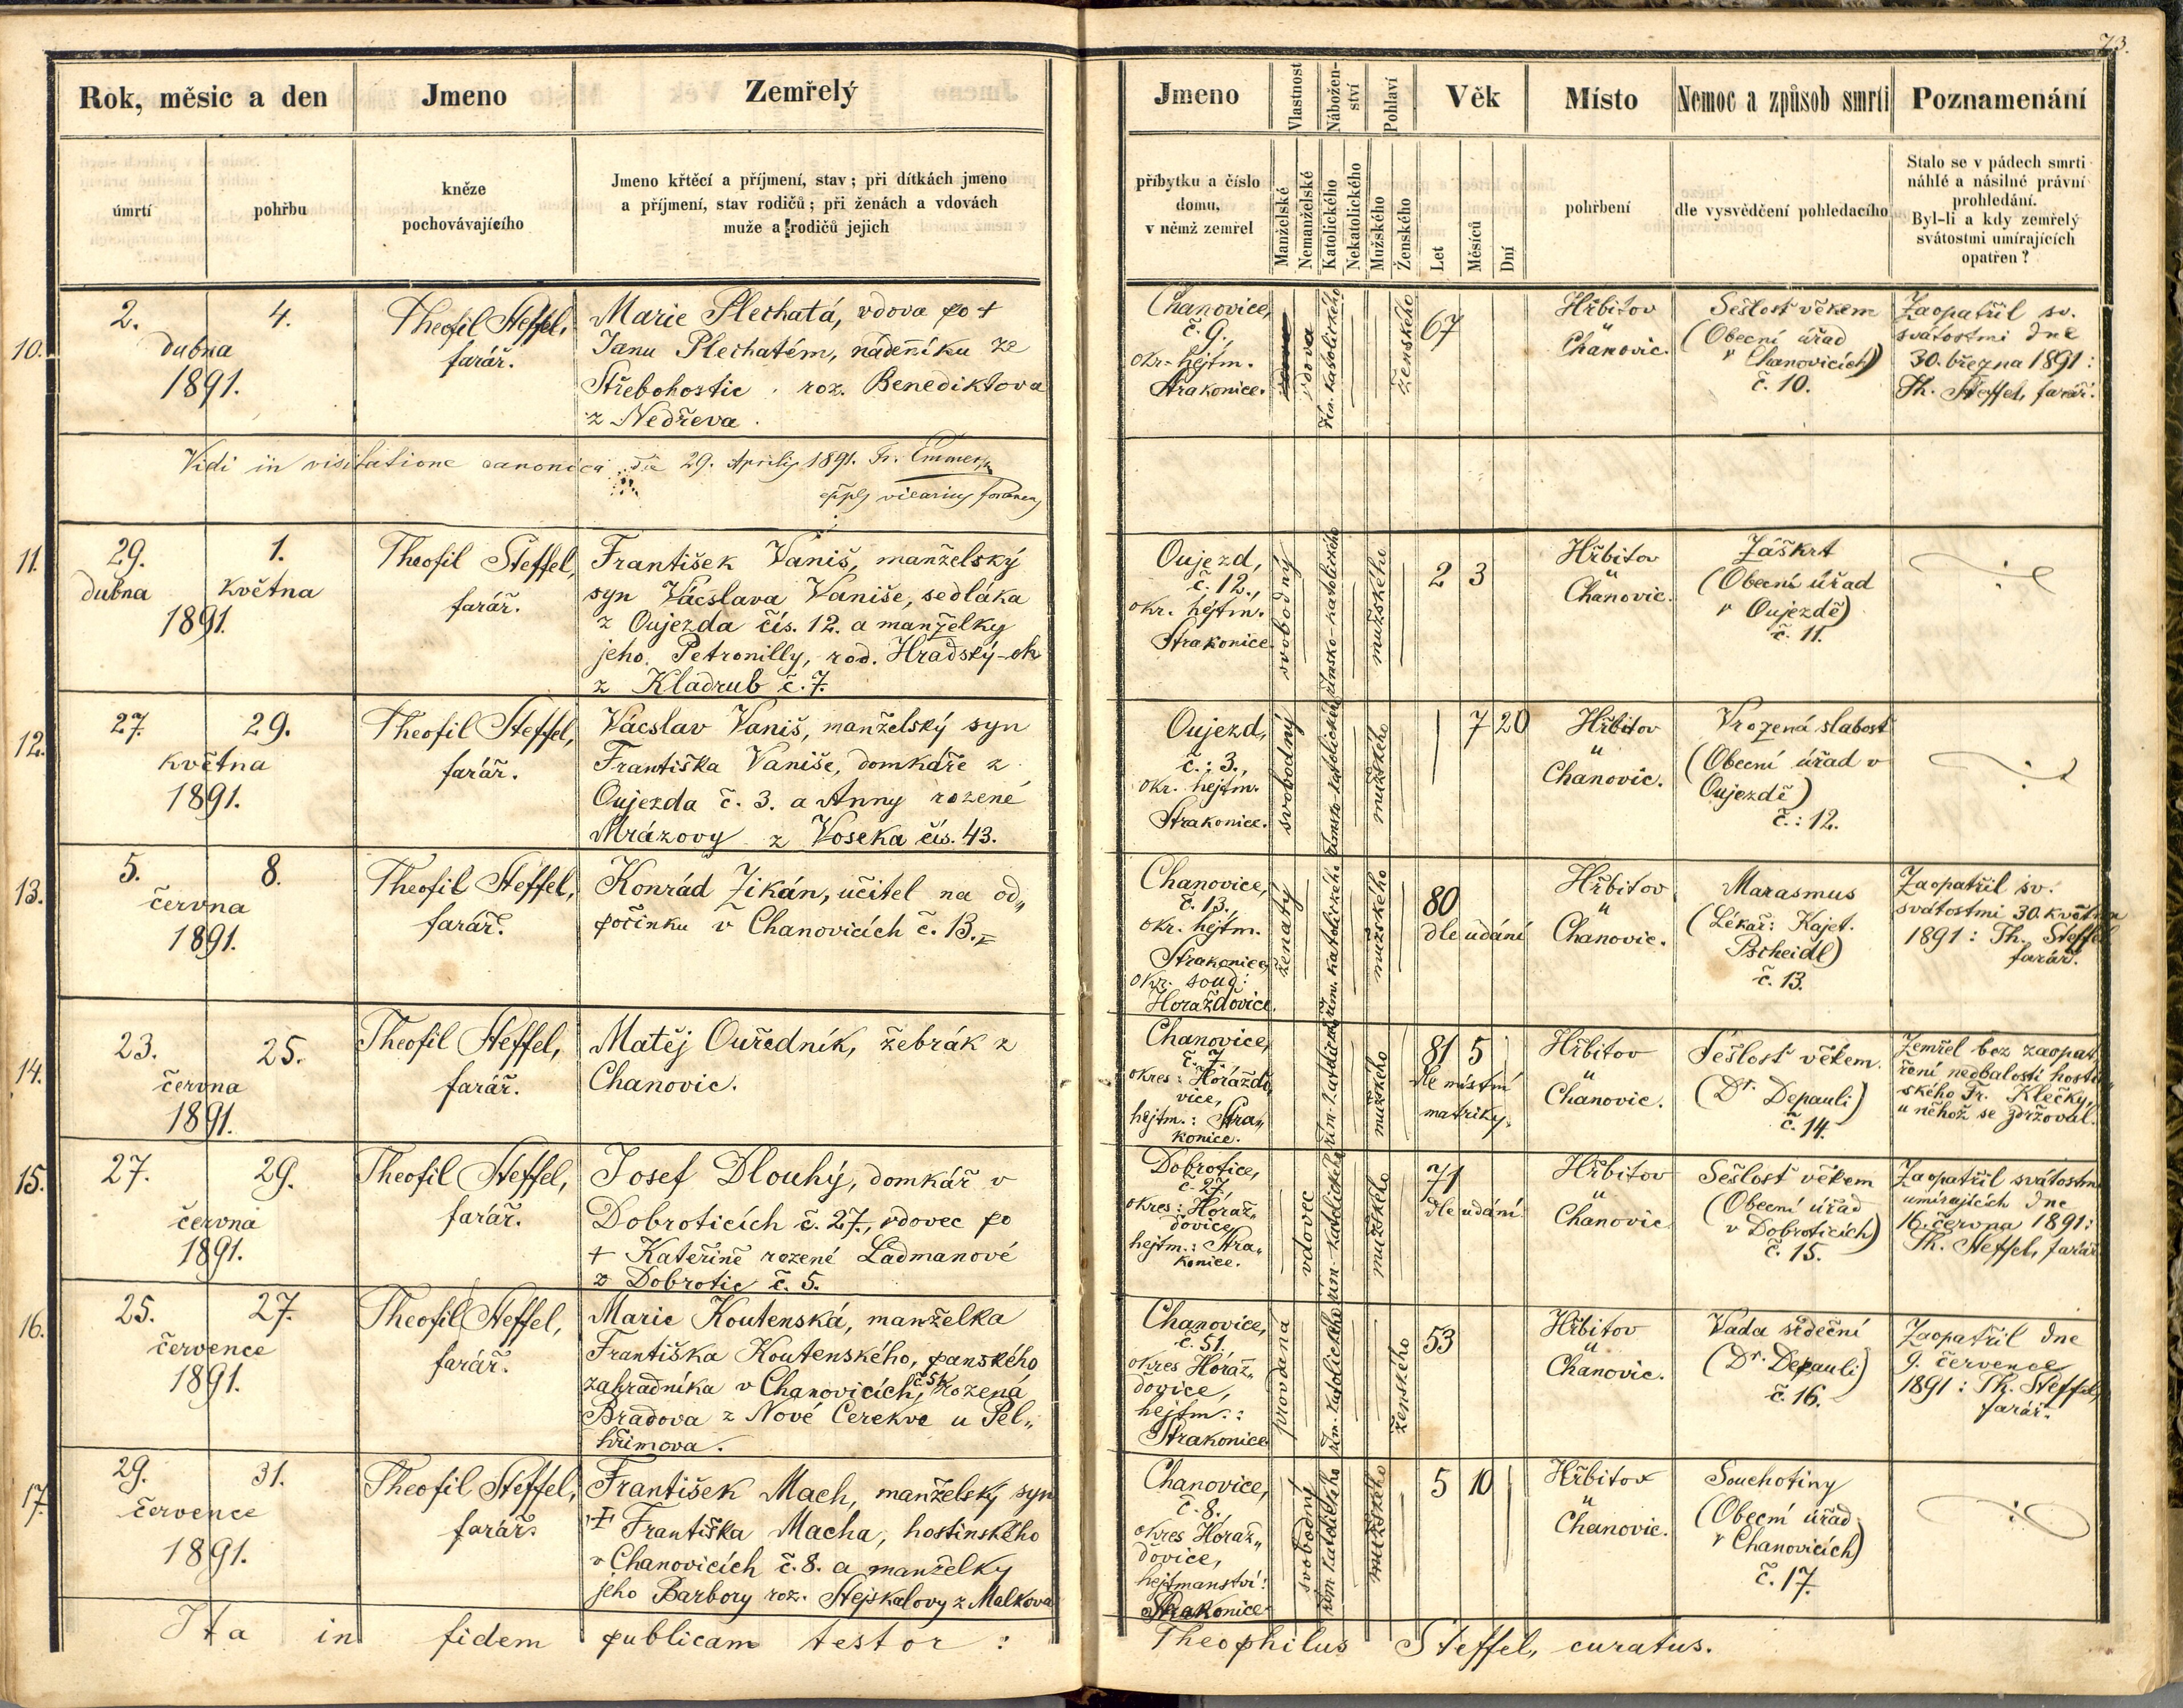 73.
Rok, měsic a den
Jmeno
Zemřelý
úmrtí
pohřbu
kněze
pochovávajícího
Jmeno křtěcí a příjmení, stav; při dítkách jmeno
a příjmení, stav rodičů; při ženách a vdovách
muže a rodičů jejich
Jmeno
Vlastnost
Nábožen-
ství
Pohlaví
Věk
Místo
Nemoc a způsob smrti
Poznamenání
příbytku a číslo
domu,
v němž zemřel
Manželské
Nemanželské
Katolického
Nekatolického
Mužského
Ženského
Let
Měsíců
Dní
pohřbení
dle vysvědčení pohledacího
Stalo se v pádech smrti
náhlé a násilné právní
prohledání.
Byl-li a kdy zemřelý
svátostmi umírajících
opatřen?
10.
2.
4.
dubna
1891.
Theofil Steffel,
farář.
Marie Plechatá, vdova po +
Janu Plechatém, nádenníku ze
Střebohostic, roz. Benediktova
z Nedřeva.
Chanovice,
č. 9.
okr. hejtm.
Strakonice.
vdova
řím. katolického
ženského
67
Hřbitov
u
Chanovic.
Sešlost věkem
(Obecní úřad
v Chanovicích)
č. 10.
Zaopatřil sv.
svátostmi dne
30. března 1891:
Th. Steffel, farář.
Vidi in visitatione canonica die 29. Aprilis 1891. Fr.
vicarius
11.
29.
1.
dubna
května
1891.
Theofil Steffel,
farář.
František Vaniš, manželský
syn Vácslava Vaniše, sedláka
z Oujezda čís. 12. a manželky
jeho Petronilly, rod. Hradský-ch
z Kladrub č. 7.
Oujezd,
č. 12.,
okr. hejtm.
Strakonice.
svobodný
římsko-katolického
mužského
2
3
Hřbitov
u
Chanovic.
Záškrt
(Obecní úřad
v Oujezdě)
č. 11.
12.
27.
29.
května
1891.
Theofil Steffel,
farář.
Vácslav Vaniš, manželský syn
Františka Vaniše, domkáře z
Oujezda č. 3. a Anny rozené
Mrázovy z Voseka čís. 43.
Oujezd,
č.: 3.,
okr. hejtm.
Strakonice.
svobodný
římsko-katolického
mužského
7
20
Hřbitov
u
Chanovic.
Vrozená slabost
(Obecní úřad v
Oujezdě)
č.: 12.
13.
5.
8.
června
1891.
Theofil Steffel,
farář.
Konrád Zikán, učitel na od„
počinku v Chanovicích č. 13.
Chanovice,
č. 13.,
okr. hejtm.
Strakonice,
okr. soud:
Horažďovice.
ženatý
řím. katolického
mužského
80
dle udání
Hřbitov
u
Chanovic.
Marasmus
(Lékař: Kajet.
Pscheidl)
č. 13.
Zaopatřil sv.
svátostmi 30. května
1891: Th. Steffel
farář.
14.
23.
25.
června
1891.
Theofil Steffel,
farář.
Matěj Ouředník, žebrák z
Chanovic.
Chanovice,
č. 7.
okres: Horažďo„
vice,
hejtm.: Stra„
konice.
řím. katolického
mužského
81
5
dle místní
matriky.
Hřbitov
u
Chanovic.
Sešlost věkem.
(Dr. Depauli)
č. 14.
Zemřel bez zaopat„
ření nedbalostí hostin„
ského Fr. Klečky,
u něhož se zdržoval.
15.
27.
29.
června
1891.
Theofil Steffel,
farář.
Josef Dlouhý, domkář v
Dobroticích č. 27., vdovec po
+ Kateřině rozené Ladmanové
z Dobrotic č. 5.
Dobrotice,
č. 27,
okres: Horaž„
ďovice,
hejtm.: Stra„
konice.
vdovec
řím. katolického
mužského
71
dle udání
Hřbitov
u
Chanovic
Sešlost věkem
(Obecní úřad
v Dobroticích)
č. 15.
Zaopatřil svátostmi
umírajících dne
16. června 1891:
Th. Steffel, farář.
16.
25.
27.
července
1891.
Theofil Steffel,
farář.
Marie Koutenská, manželka
Františka Koutenského, panského
zahradníka v Chanovicích, č. 51. rozená
Bradova z Nové Cerekve u Pel„
hřimova.
Chanovice,
č. 51.
okres Horaž„
ďovice,
hejtm.:
Strakonice.
provdaná
řím. katolického
ženského
53
Hřbitov
u
Chanovic.
Vada srdeční
(Dr. Depauli)
č. 16.
Zaopatřil dne
9. července
1891: Th. Steffel,
farář.
17.
29.
31.
července
1891.
Theofil Steffel,
farář.
František Mach, manželský syn
+ Františka Macha, hostinského
v Chanovicích č. 8. a manželky
jeho Barbory roz. Stejskalovy z Malkova
Chanovice,
č. 8.
okres Horaž„
ďovice,
hejtmanství:
Strakonice
svobodný
řím. katolického
mužského
5
10
Hřbitov
u
Chanovic.
Souchotiny
(Obecní úřad
v Chanovicích)
č. 17.
Ita in fidem publicam testor: Theophilus Steffel, curatus.